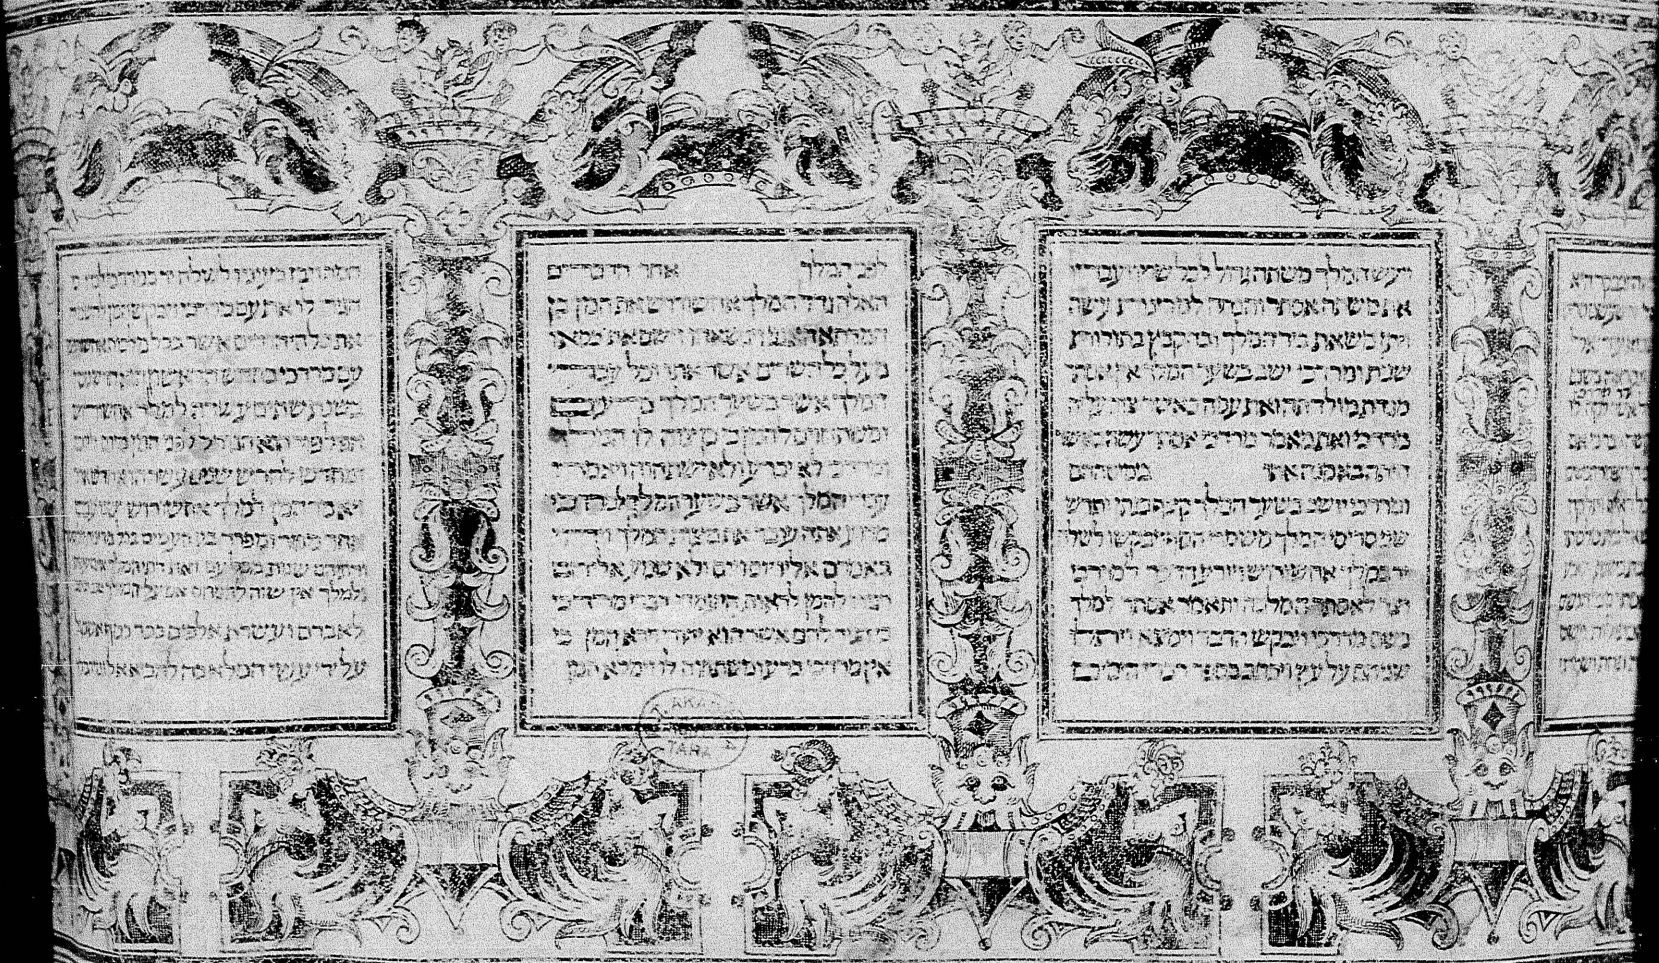 ויעש המלך משתה גדול לכל שריו ועבדיו
את משתה אסתר והנחה למדינות עשה
ויתן משאת כיד המלך ובהקבץ בתולות
שנית ומרדכי ישב בשער המלך אין אסתר
מגדת מולדתה ואת עמה כאשר צוה עליה
מרדכי ואת מאמר מרדכי אסתר עשה כאשר
היתה באמנה אתו בימים ההם
ומרדכי יושב בשער המלך קצף בגתן ותרש
שני סריסי המלך משמרי הסף ויבקשו לשלח
יד במלך אחשורוש ויודע הדבר למרדכי
ויגד לאסתר המלכה ותאמר אסתר למלך
בשם מרדכי ויבקש הדבר וימצא ויתלו
שניהם על עץ ויכתב בספר דברי הימים
לפני המלך אחר הדברים
האלה גדל המלך אחשורוש את המן בן
המדתא האגגי וינשאהו וישם את כסאו
מעל כל השרים אשר אתו וכל עבדי
המלך אשר בשער המלך כרעים
ומשתחוים להמן כי כן צוה לו המלך
ומרדכי לא יכרע ולא ישתחוה ויאמרו
עבדי המלך אשר בשער המלך למרדכי
מדוע אתה עובר את מצות המלך ויהי
באמרם אליו יום ויום ולא שמע אליהם
ויגידו להמן לראות היעמדו דברי מרדכי
כי הגיד להם אשר הוא יהודי וירא המן כי
אין מרדכי כרע ומשתחוה לו וימלא המן
חמה ויבז בעיניו לשלח יד במרדכי לבדו כי
הגידו לו את עם מרדכי ויבקש המן להשמיד
את כל היהודים אשר בכל מלכות אחשורוש
עם מרדכי בחדש הראשון הוא חדש ניסן
בשנת שתים עשרה למלך אחשורוש
הפיל פור הוא הגורל לפני המן מיום ליום
ומחדש לחדש שנים עשר הוא חדש אדר
ויאמר המן למלך אחשורוש ישנו עם
אחד מפזר ומפרד בין העמים בכל מדינות
ודתיהם שנות מכל עם ואת דתי המלך אינם
ולמלך אין שוה להניחם אם על המלך טוב יכתב
לאבדם ועשרת אלפים ככר כסף אשקול
על ידי עשי המלאכה להביא אל גנזי